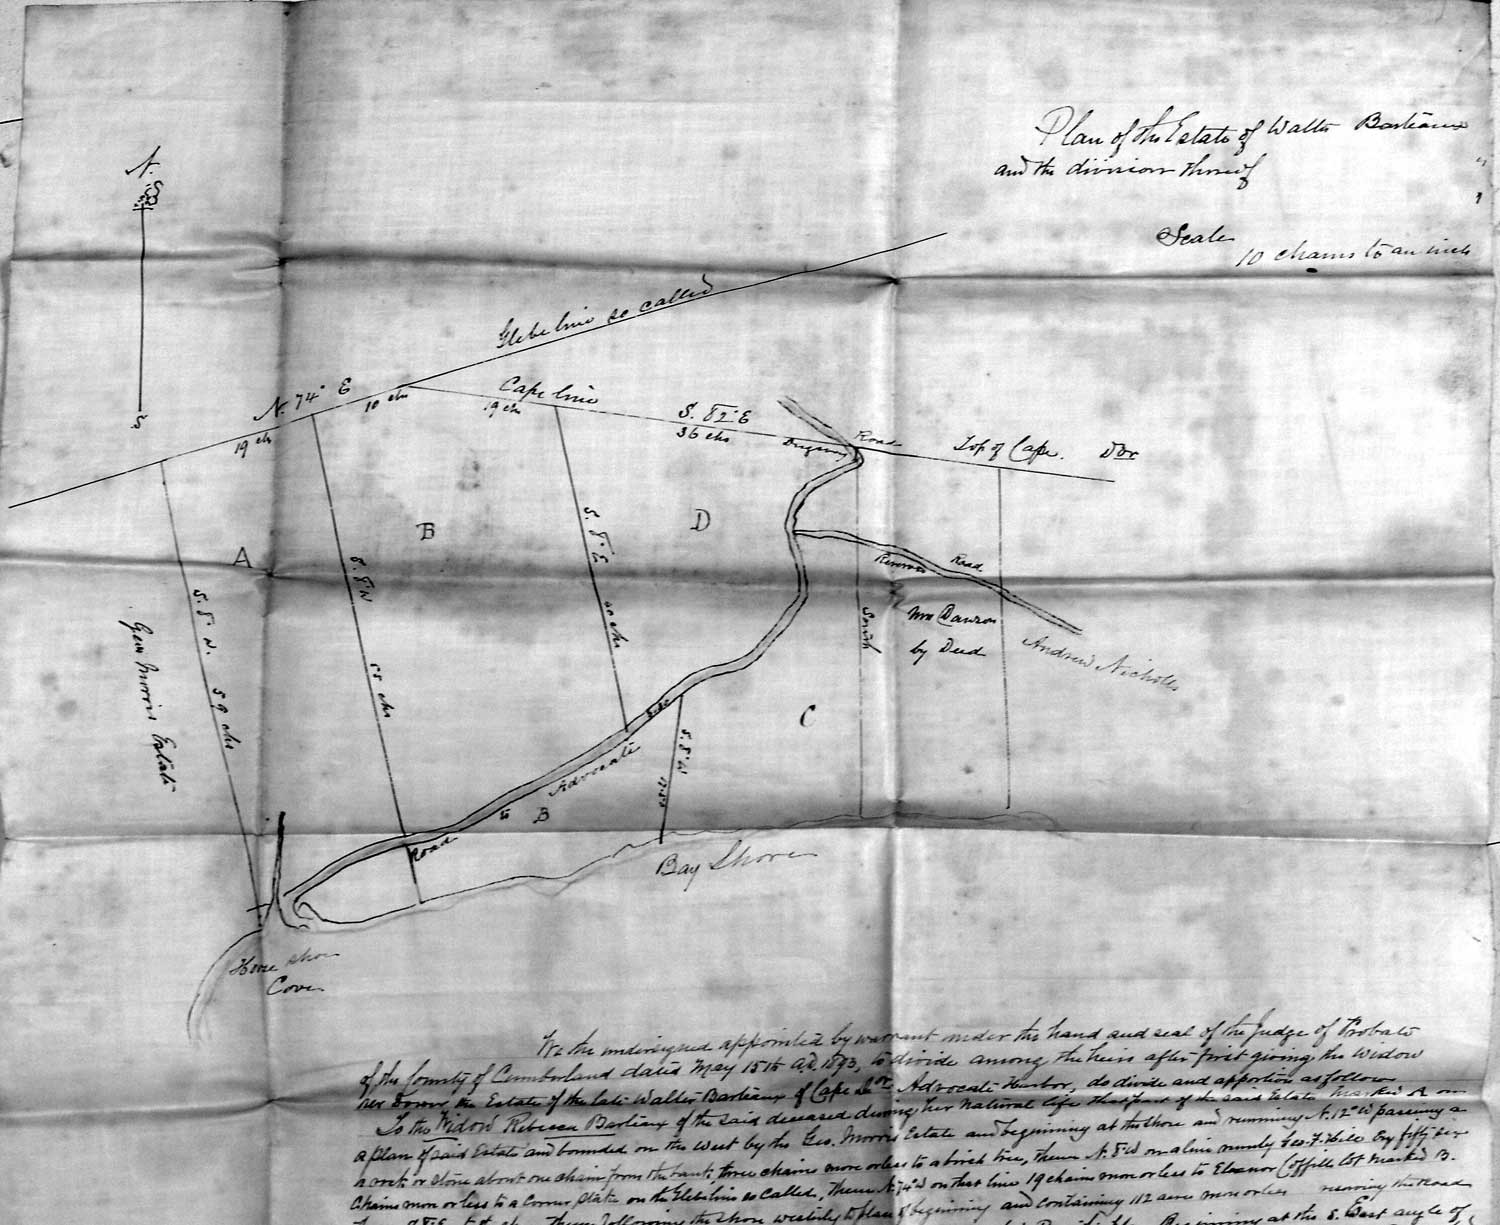 Plan of the Estate of Walter Barteaux
and the division thereof
Scale
10 chains to an inch
N.
S
Glebe line so called
N. 74° E
19 chs
10 chs
Cape line
19 chs
S. 82° E
36 chs
Dugway
Road
Top of Cape
Dor
A
B
D
S. 8° W.
59 chs
S. 8° W
55 chs
S. 8° E
40 chs
Geo Morris Estate
Reserve Road
Wm Dawson
by Deed
South
Andrew Nicholls
C
S. 8° W
Road
to
Advocate
B
Bay Shore
Horse shoe
Cove
We the undersigned appointed by warrant under the hand and seal of the Judge of Probate
of the County of Cumberland dated May 15th A.D. 1893, to divide among the heirs after first giving the Widow
her Dower, the Estate of the late Walter Barteaux of Cape Dor Advocate Harbor, do divide and apportion as follows
To the Widow Rebecca Barteaux of the said deceased during her natural life that part of the said Estate marked A on
a plan of said Estate and bounded on the West by the Geo. Morris Estate and beginning at the shore and running N. 12° W passing a
a rock or stone about one chain from the bank three chains more or less to a birch tree, thence N. 8° W on a line run by Geo. F. Hill Esq fifty six
chains more or less to a corner stake on the Glebe line so called, thence N. 74° on that line 19 chains more or less to Eleanor Coffill lot marked B.
thence following the shore westerly to place of beginning and containing 112 acres more or less reserving the Road
Beginning at the S. East angle of